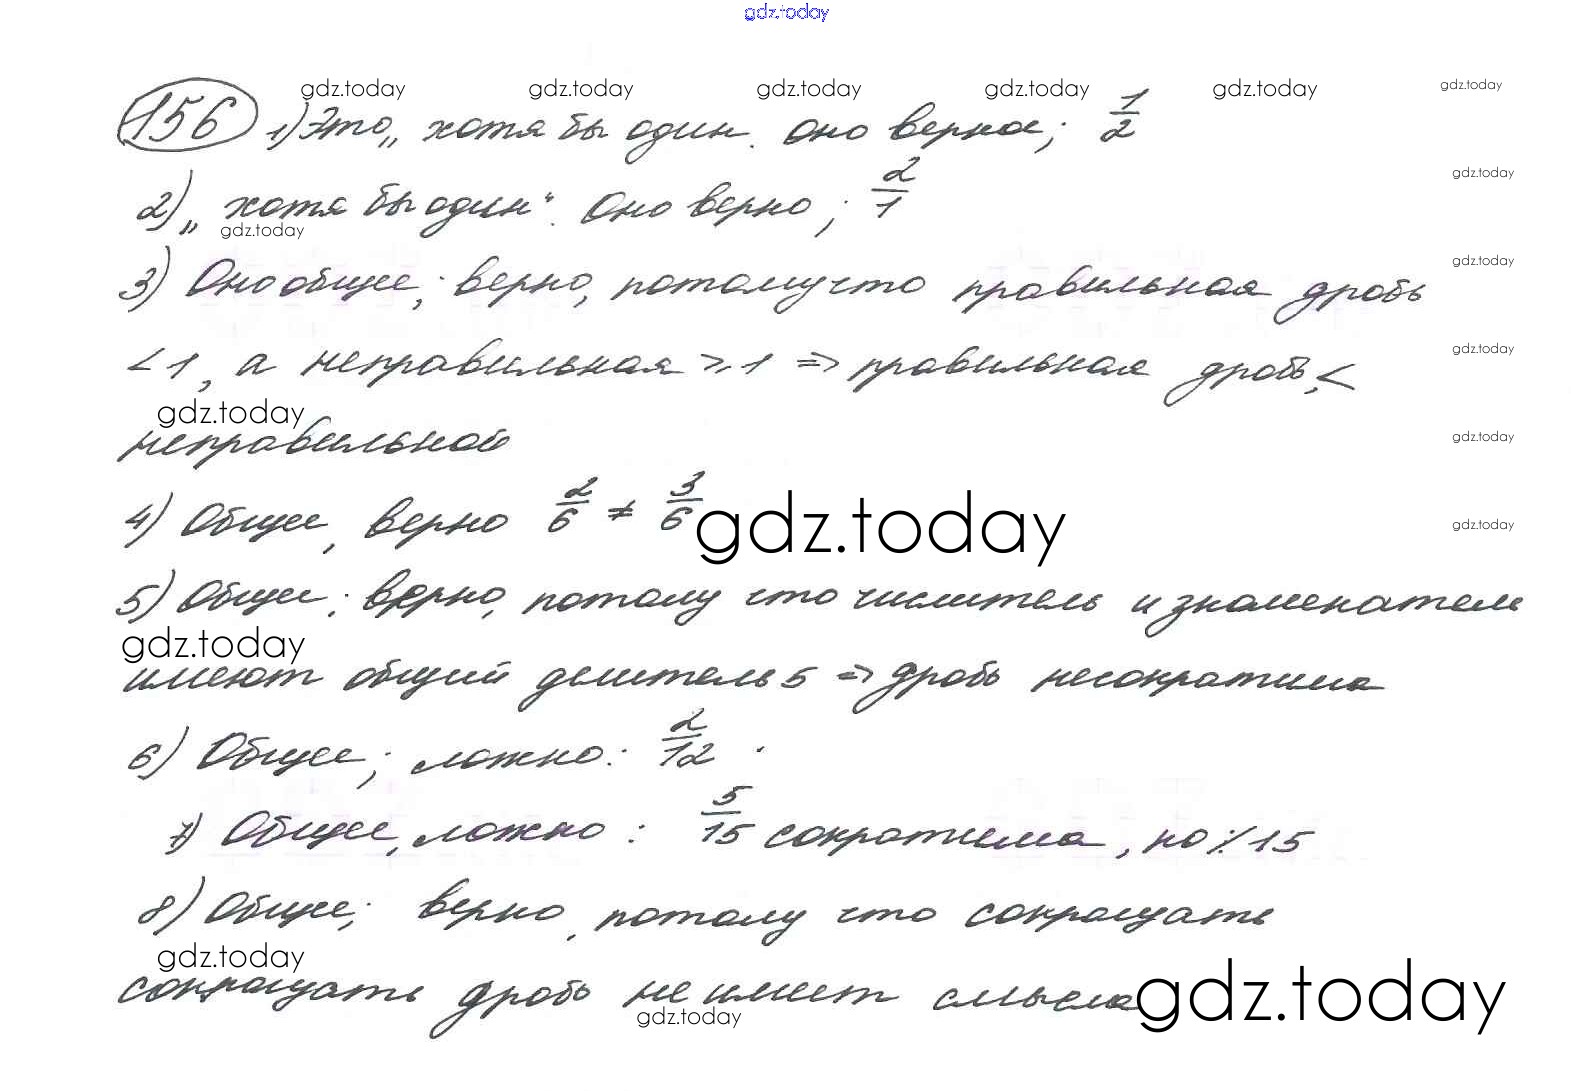 gdz.today
gdz.today gdz.today gdz.today gdz.today gdz.today gdz.today
156 1) Это „хотя бы один. Оно верное; 1/2
gdz.today
2) „хотя бы один“. Оно верно; 2/1
gdz.today
3) Оно общее; верно, потому что правильная дробь
gdz.today
< 1, а неправильная ⩾ 1 => правильная дробь, <
gdz.today
gdz.today
неправильной
gdz.today
4) Общее, верно 2/6 ≠ 3/6
gdz.today
gdz.today
5) Общее; верно, потому что числитель и знаменатель
gdz.today
имеют общий делитель 5 => дробь несократима
6) Общее; ложно: 2/12.
7) Общее, ложно: 5/15 сократима, но ⁒ 15
8) Общее; верно, потому что сокращать
gdz.today
сокращать дробь не имеет смысла
gdz.today
gdz.today